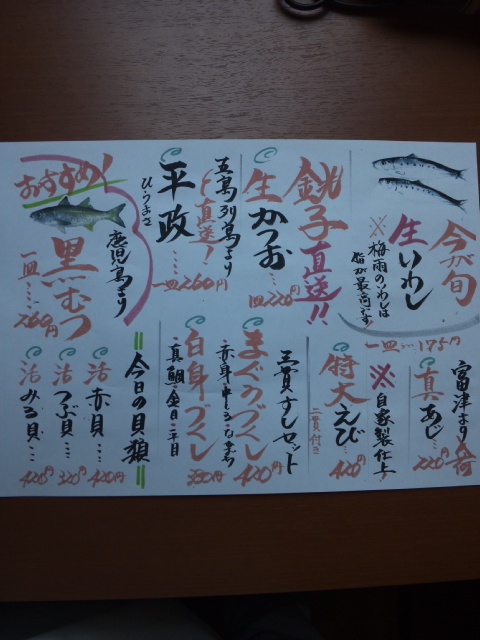 今が旬
生いわし
※梅雨のいわしは
脂が最高です!
一皿…175円
銚子直送!!
生かつお…
一皿220円
五島列島より
直送!
平政…
ひらまさ
一皿260円
おすすめ!
鹿児島より
黒むつ
一皿…260円
富津より
真あじ…
220円
※自家製仕上
特大えび…
二貫付き
420円
三貫すしセット
まぐろづくし
赤身
420円
白身づくし
真鯛
350円
=今日の貝類=
活赤貝…
420円
活つぶ貝…
320円
活みる貝…
420円